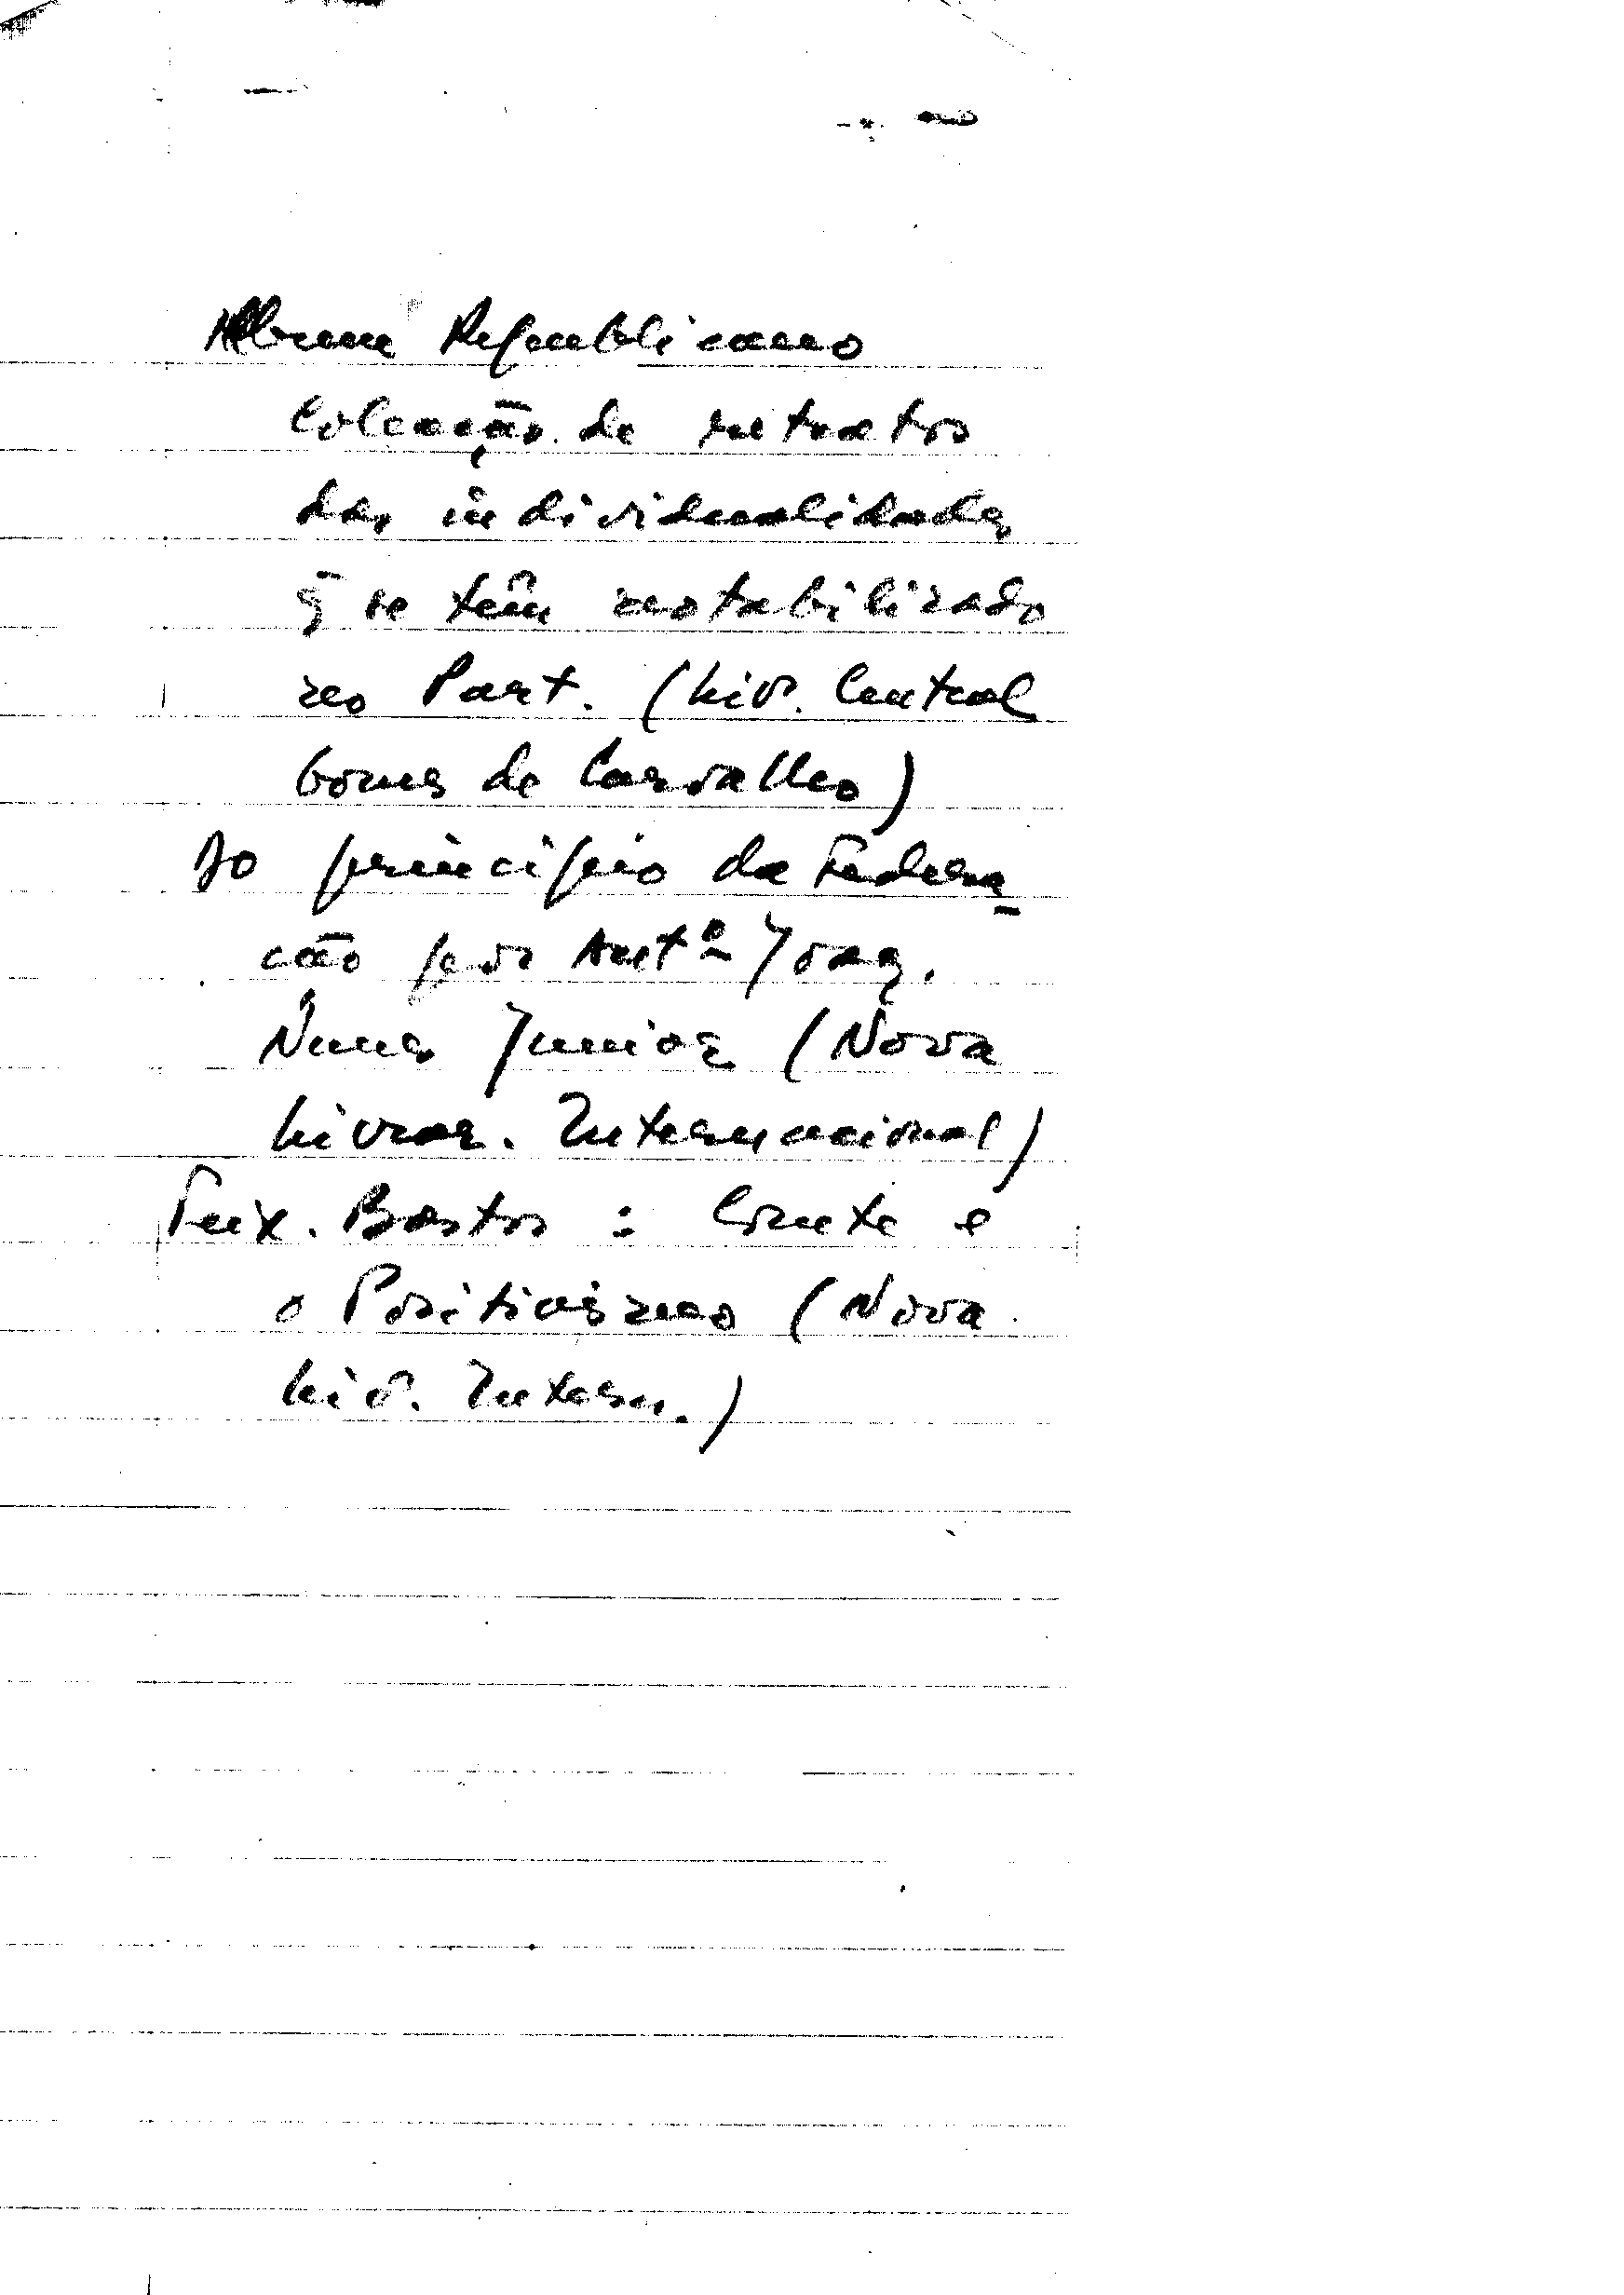 Album Republicano
Colecção de retratos
das individualidades
q̃ se têm notabilizado
no Part. (Livr. Central
Gomes de Carvalho)
Do princípio da Federa
ção por Antº Joaq.
Nunes Junior (Nova
Livrar. Internacional)
Teix. Bastos : Comte e
o Positivismo (Nova
Liv. Intern.)